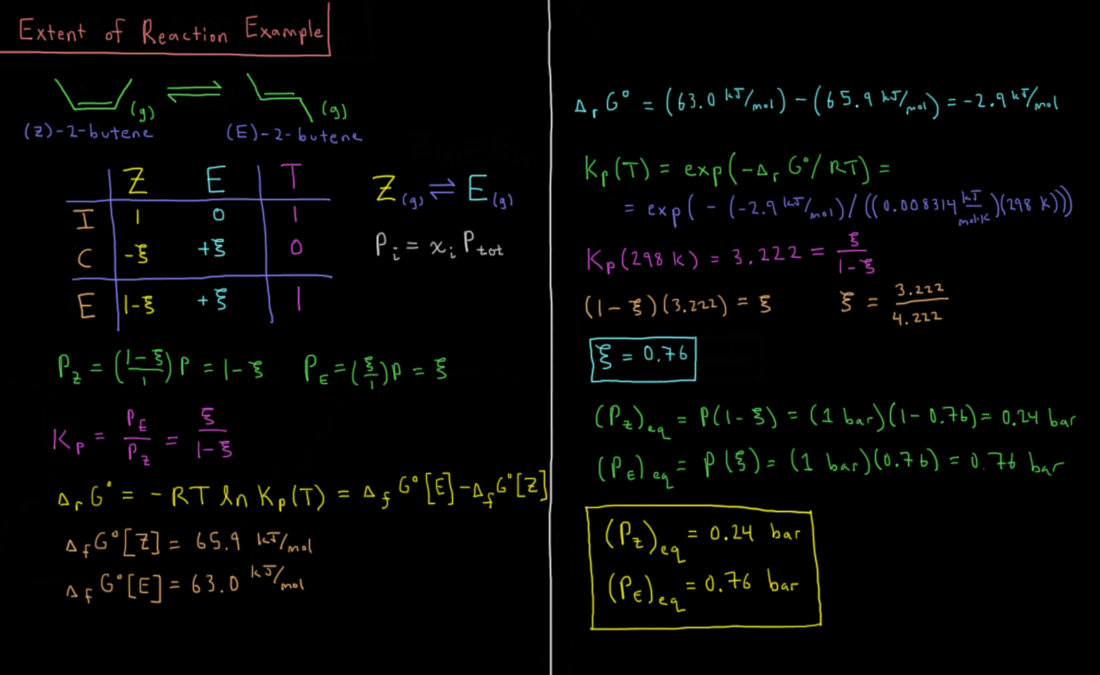 Extent of Reaction Example
(g) ⇌ (g)
(Z)-2-butene (E)-2-butene
Z E T
I 1 0 1
C -ξ +ξ 0
E 1-ξ +ξ 1
Z(g) ⇌ E(g)
P_i = x_i P_tot
P_Z = ((1-ξ)/1)P = 1-ξ P_E = (ξ/1)P = ξ
K_P = P_E/P_Z = ξ/(1-ξ)
Δ_r G° = -RT ln K_P(T) = Δ_f G°[E] - Δ_f G°[Z]
Δ_f G°[Z] = 65.9 kJ/mol
Δ_f G°[E] = 63.0 kJ/mol
Δ_r G° = (63.0 kJ/mol) - (65.9 kJ/mol) = -2.9 kJ/mol
K_P(T) = exp(-Δ_r G°/RT) =
= exp(-(-2.9 kJ/mol)/((0.008314 kJ/mol·K)(298 K)))
K_P(298 K) = 3.222 = ξ/(1-ξ)
(1-ξ)(3.222) = ξ ξ = 3.222/4.222
ξ = 0.76
(P_Z)_eq = P(1-ξ) = (1 bar)(1-0.76) = 0.24 bar
(P_E)_eq = P(ξ) = (1 bar)(0.76) = 0.76 bar
(P_Z)_eq = 0.24 bar
(P_E)_eq = 0.76 bar